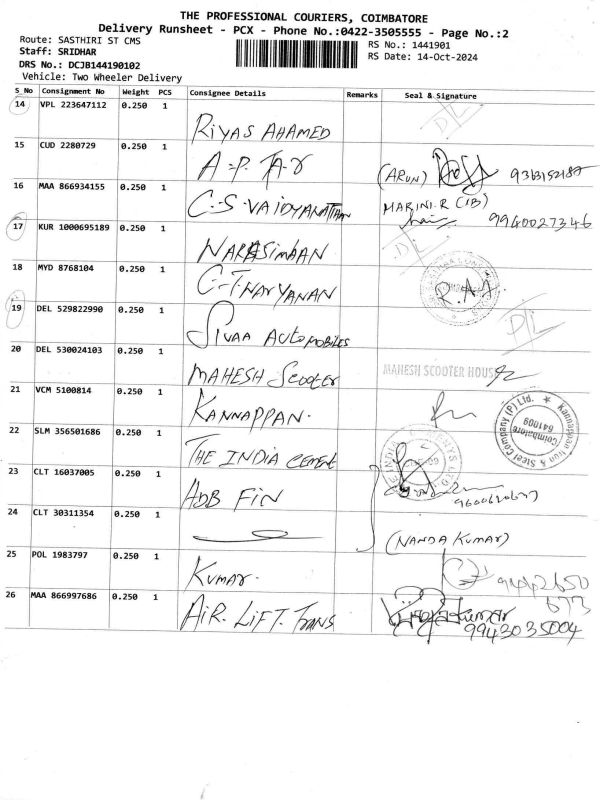 THE PROFESSIONAL COURIERS, COIMBATORE
Delivery Runsheet - PCX - Phone No.:0422-3505555 - Page No.:2
Route: SASTHIRI ST CMS
RS No.: 1441901
Staff: SRIDHAR
RS Date: 14-Oct-2024
DRS No.: DCJB144190102
Vehicle: Two Wheeler Delivery
S_No Consignment No Weight PCS Consignee Details Remarks Seal & Signature
14 VPL 223647112 0.250 1 RIYAS AHAMED D/L
15 CUD 2280729 0.250 1 A.P. TAR (ARUN)
16 MAA 866934155 0.250 1 C.S. VAIDYANATHAN MARINI.R (IB)
9940027346
17 KUR 1000695189 0.250 1 NARASIMHAN D/L
18 MYD 8768104 0.250 1 C.T. NARYANAN
19 DEL 529822990 0.250 1 SIVAA AUTOMOBILES D/L
20 DEL 530024103 0.250 1 MAHESH SCOOTER MAHESH SCOOTER HOUSE
21 VCM 5100814 0.250 1 KANNAPPAN. Kannappan Iron & Steel Company (P) Ltd. Coimbatore 641009
22 SLM 356501686 0.250 1 THE INDIA CEMENT
23 CLT 16037005 0.250 1 ADB FIN
24 CLT 30311354 0.250 1 (NANDA KUMAR)
25 POL 1983797 0.250 1 KUMAR.
26 MAA 866997686 0.250 1 AIR. LIFT. TRANS
9943035004